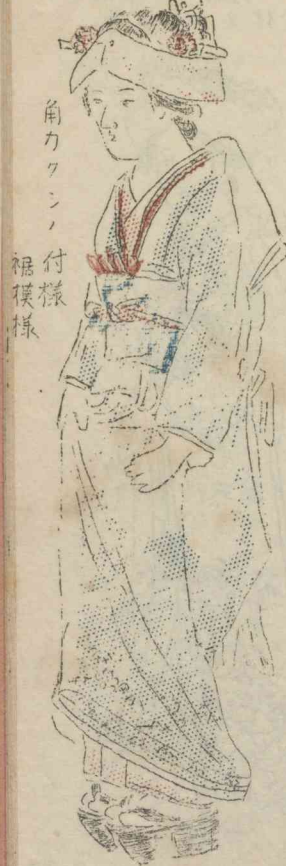 角カクシノ
付様
裾模様